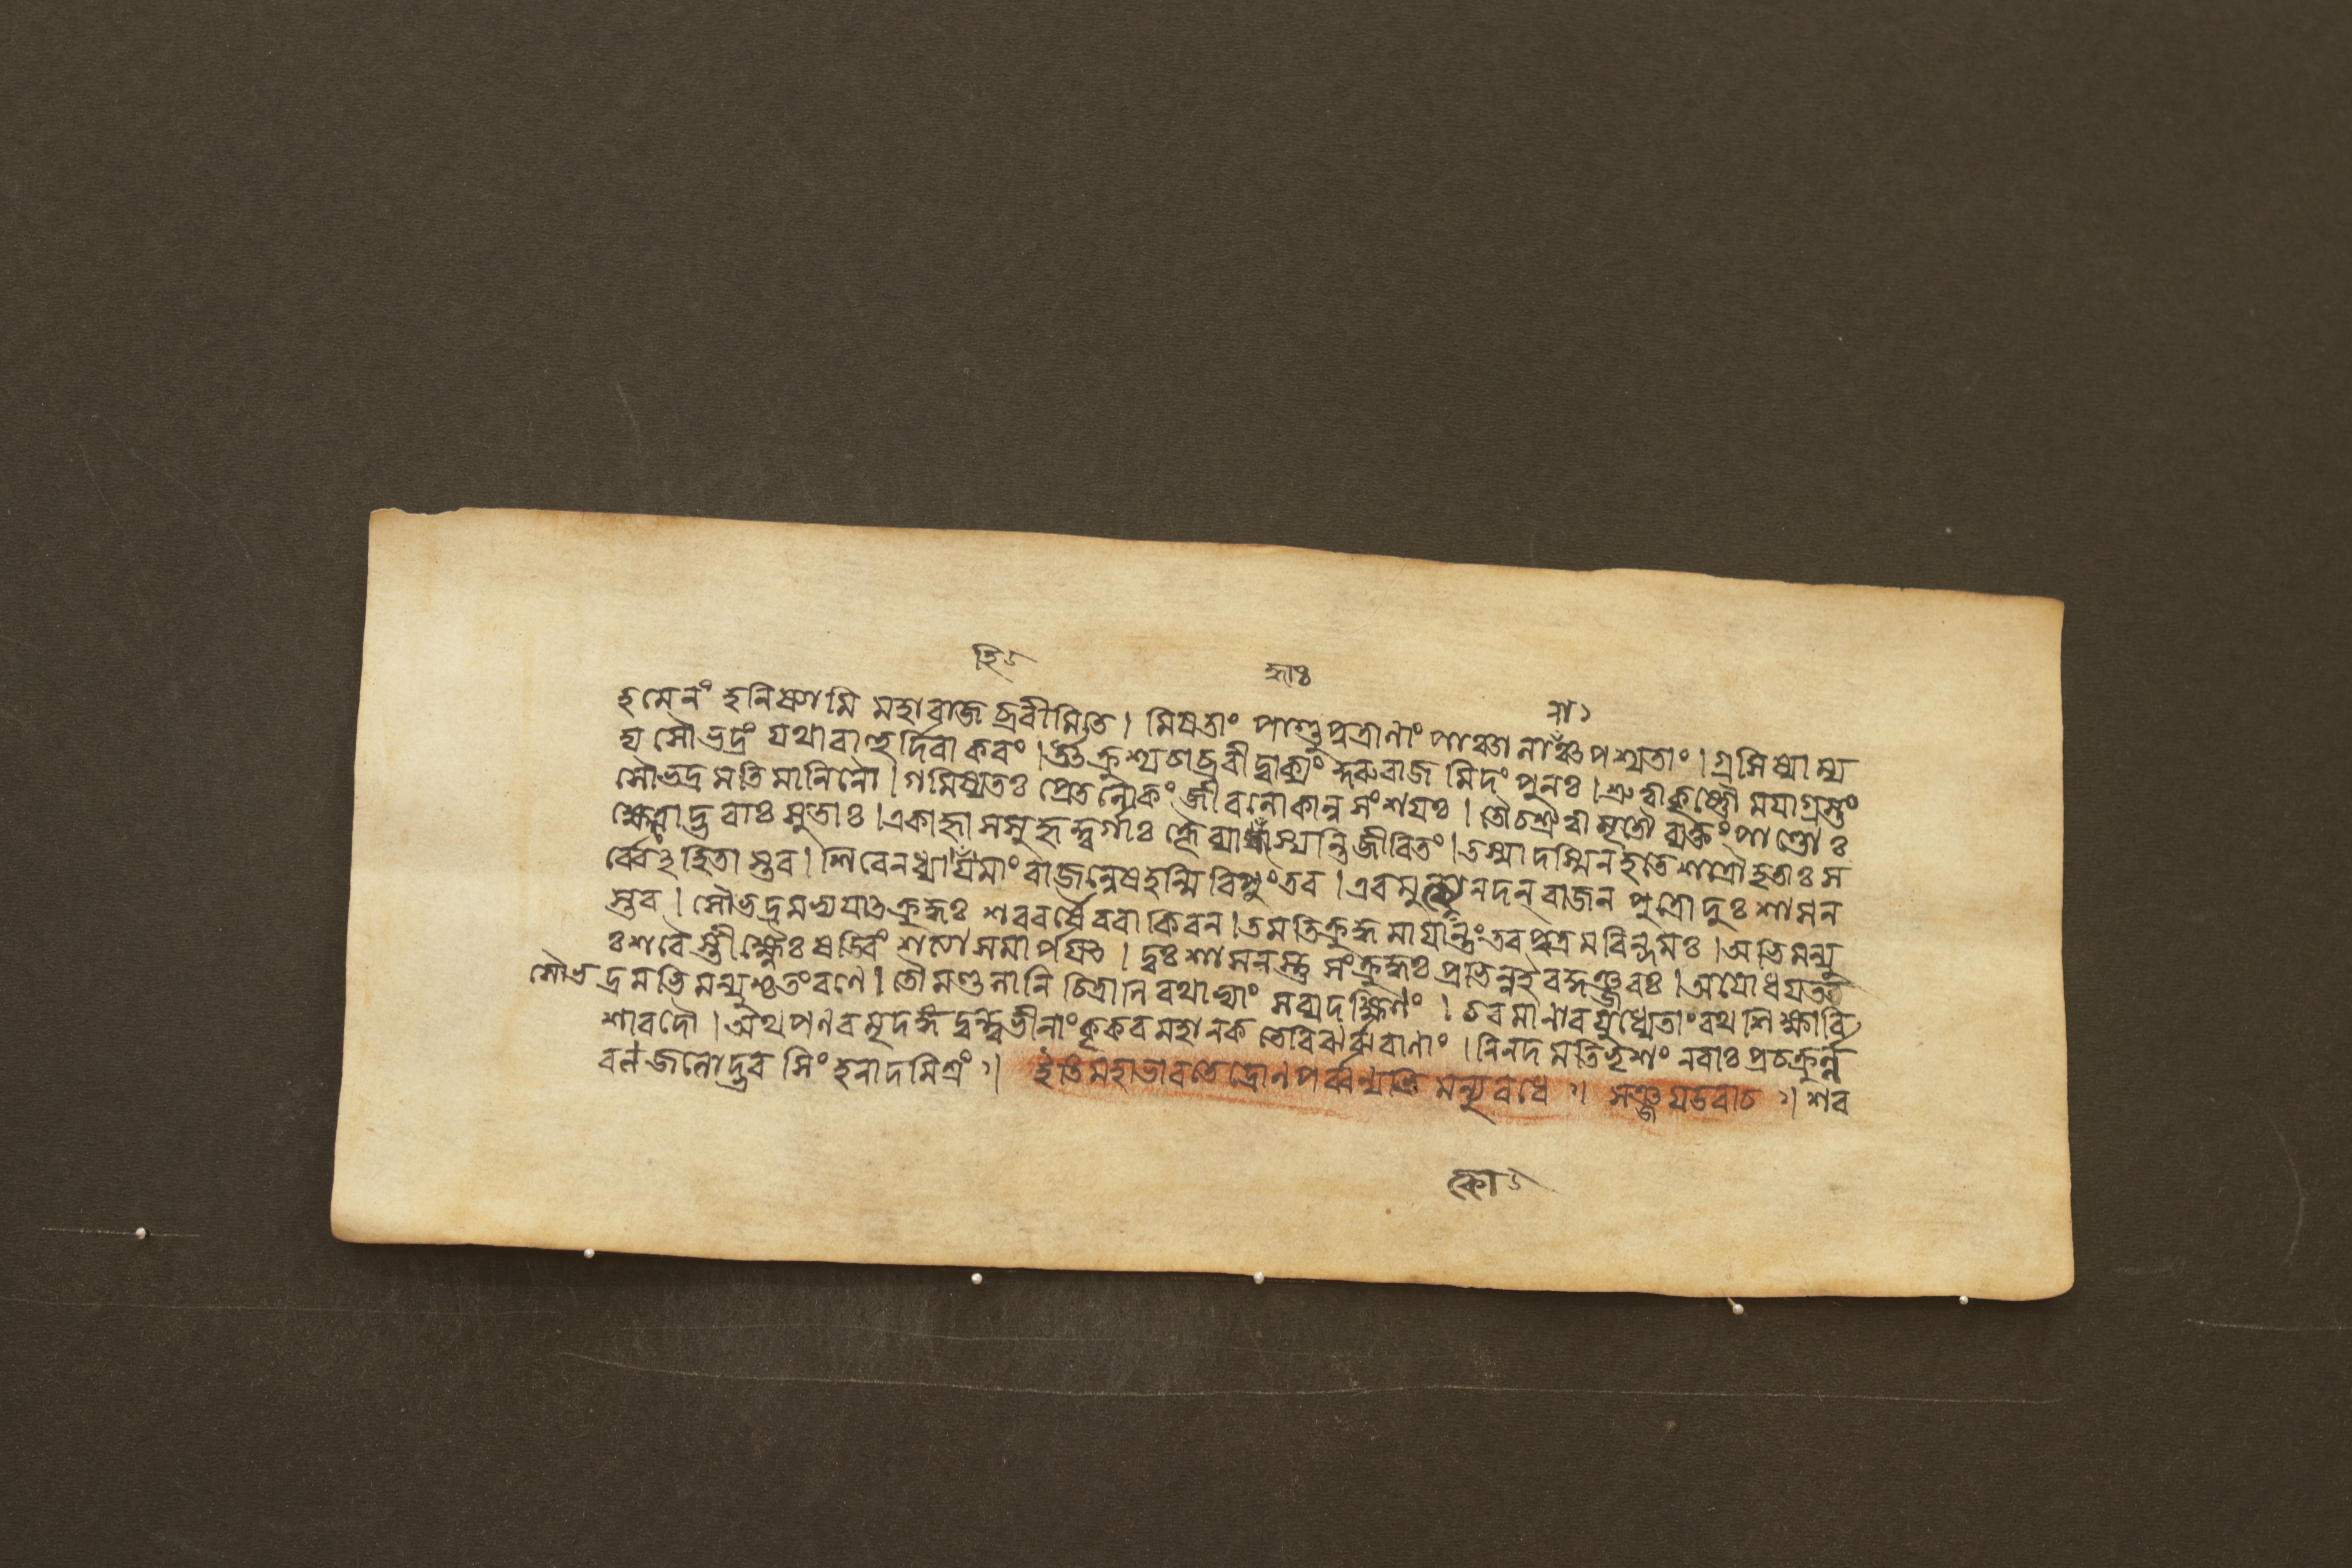 হি
দ্ধাঃ
লা
হমেনং হনিষ্যামি মহারাজ ব্রবীমি তে। মিষতাং পাণ্ডুপুত্রানাং পাঞ্চানাঁঞ্চ পশ্যতাং। গ্রসিষ্যাম্য
দ্য সৌভদ্রং যথা রাহুর্দিবাকরং। উৎক্রুশ্য চাব্রবীদ্বাক্যং কুরুরাজমিদং পুনঃ। শ্রুত্বা কৃষ্ণৌ ময়া গ্রস্তং
সৌভদ্রমতিমানিনৌ। গমিষ্যতঃ প্রেতলোকং জীবলোকান্ন সংশয়ঃ। তৌ চ শ্রুত্বা মৃতৌ ব্যক্তং পাণ্ডোঃ
ক্ষেত্রোদ্ভবাঃ সুতাঃ। একাহ্না সসুহৃদ্বর্গাঃ ক্লৈব্যাদ্ধাস্যন্তি জীবিতং। তস্মাদস্মিন হতে শত্রৌ হতাঃ স
র্ব্বেঽহিতাস্তব। শিবেন মাং রাজন্নেষ হন্মি রিপুং তব। এবমুক্ত্বা নদন্ রাজন পুত্রো দুঃশাসন
স্তব। সৌভদ্রমভ্যযাত ক্রুদ্ধঃ শরবর্ষৈরবাকিরন। তমতিক্রুদ্ধমায়ান্তং তব পুত্রমরিন্দমঃ। অভিমন্যু
ঃ শরৈস্তীক্ষ্ণৈঃ ষড্বিংশত্যা সমার্পয়ৎ। দুঃশাসনস্তু সংক্রুদ্ধঃ প্রভিন্ন ইব কুঞ্জরঃ। অযোধয়ত
সৌভদ্রমভিমন্যুশ্চ তং রণে। তৌ মণ্ডলানি চিত্রানি রথাভ্যাং সব্যদক্ষিণং। চরমানাবযুধ্যেতাং রথশিক্ষাবি
শারদৌ। অথ পণবমৃদঙ্গদুন্দুভীনাং কৃকরমহানকভেরিঝর্ঝরাণাং। নিনদমতিভৃশং নরাঃ প্রচক্রুর্ল্ল
বণজলোদ্ভবসিংহনাদমিশ্রং ॥ ইতি মহাভারতে দ্রোণপর্ব্বন্যভিমন্যুবধে ॥ সঞ্জয় উবাচ ॥ শর
কো